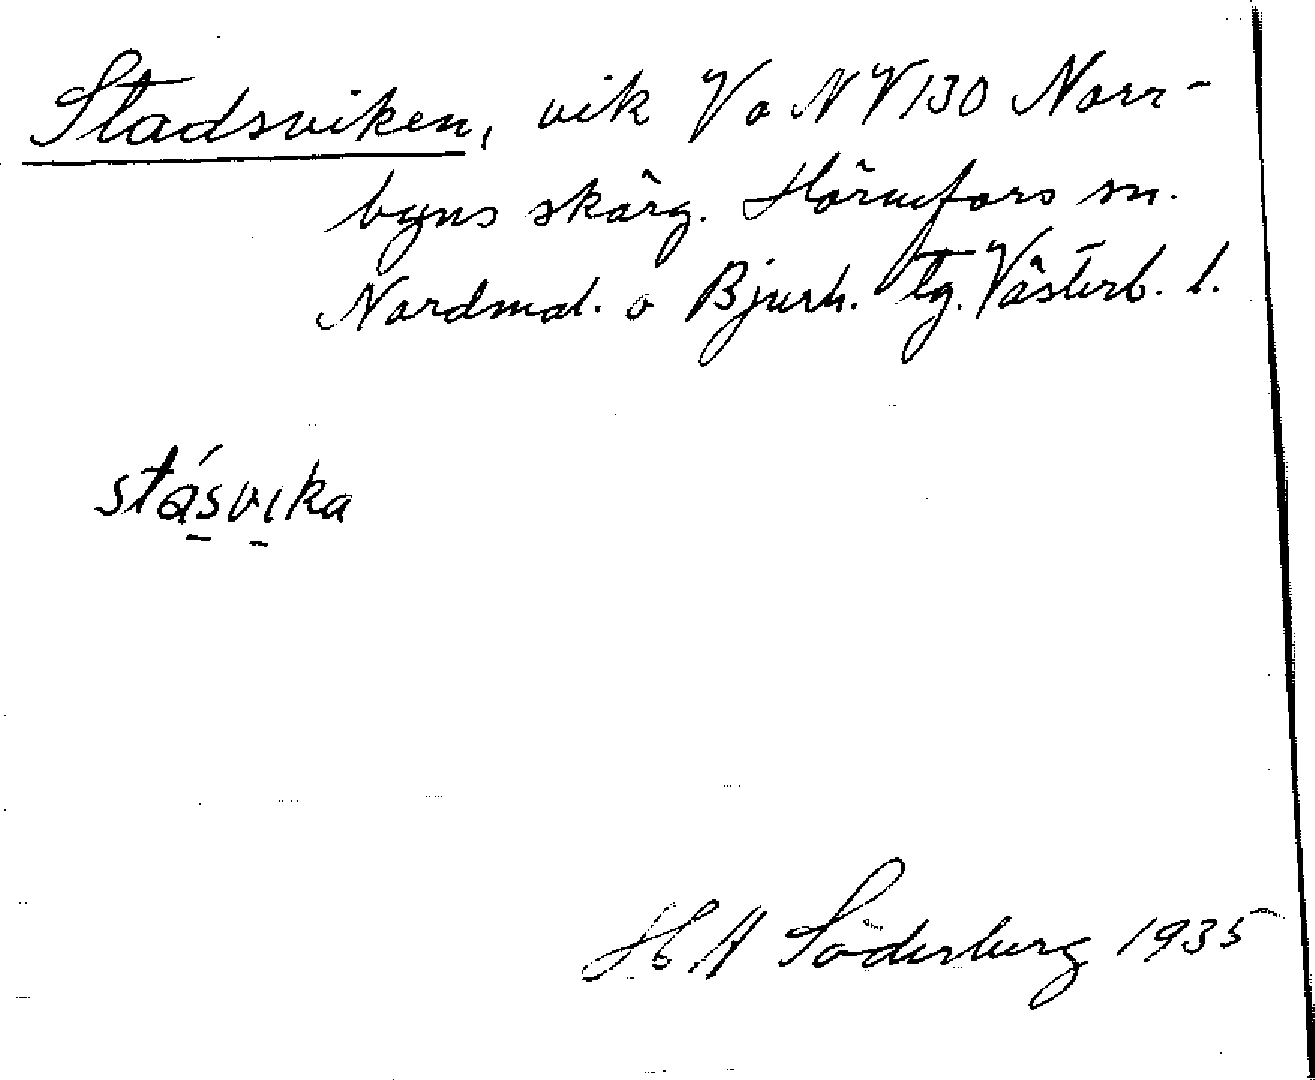 Stadsviken, vik V o NV 130 Norr-
byns skärg. Hörnefors sn.
Nordmal. o Bjurh. tg. Västerb. l.
stásvika
H A Söderberg 1935